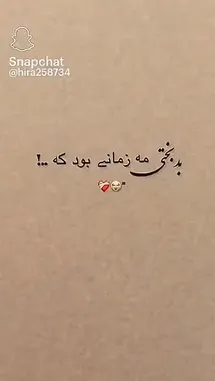 Snapchat
@hira258734
بدبختی مه زمانے بود که ..!